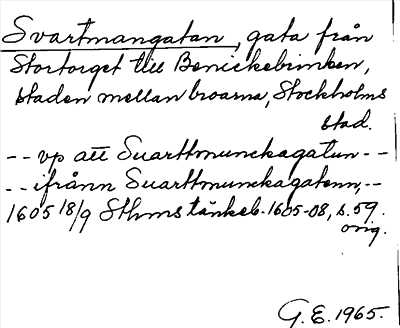 Svartmangatan, gata från
Stortorget till Benickebrinken,
staden mellan broarna, Stockholms
stad.
-- vp att Suarttmunckagatun --
-- ifrånn Suarttmunckagatenn, --
1605 18/9 Sthms tänkeb. 1605-08, s. 59.
orig.
G. E. 1965.